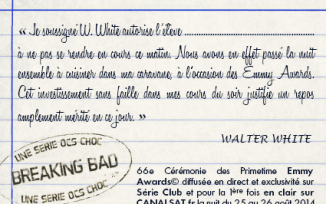 « Je soussigné W. White autorise l'élève ........................................
à ne pas se rendre en cours ce matin. Nous avons en effet passé la nuit
ensemble à cuisiner dans ma caravane, à l'occasion des Emmy Awards.
Cet investissement sans faille dans mes cours du soir justifie un repos
amplement mérité en ce jour. »
WALTER WHITE
UNE SERIE OCS CHOC
BREAKING BAD
UNE SERIE OCS CHOC
66e Cérémonie des Primetime Emmy
Awards© diffusée en direct et exclusivité sur
Série Club et pour la 1ère fois en clair sur
CANALSAT.fr la nuit du 25 au 26 août 2014